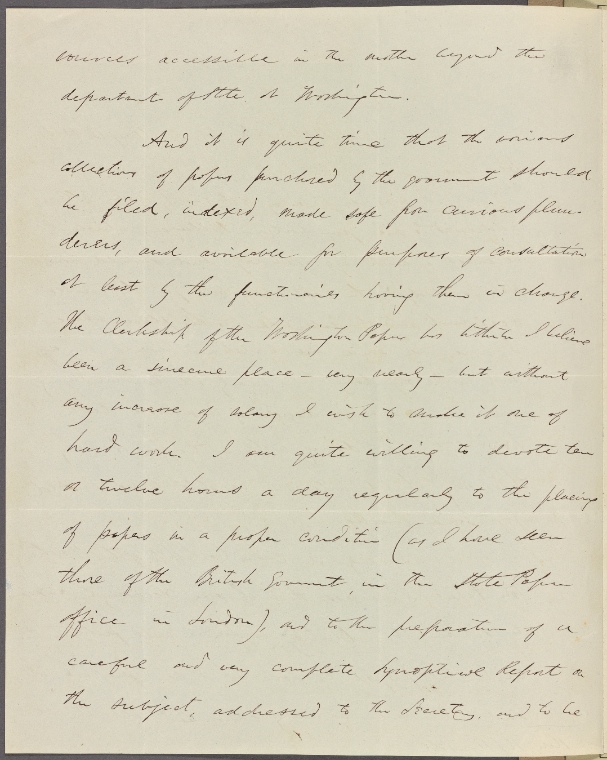 sources accessible in the matter beyond the
department of State at Washington.
And it is quite time that the various
collections of papers purchased by the government should
be filed, indexed, made safe from curious plun-
derers, and available for purposes of consultation
at least by the functionaries having them in charge.
The Clerkship of the Washington Papers has hitherto I believe
been a sinecure place - very nearly - but without
any increase of salary I wish to make it one of
hard work. I am quite willing to devote ten
or twelve hours a day regularly to the placing
of papers in a proper condition (as I have seen
those of the British Government, in the State Paper
office in London), and to the preparation of a
careful and very complete synoptical Report on
the subject, addressed to the Secretary, and to be